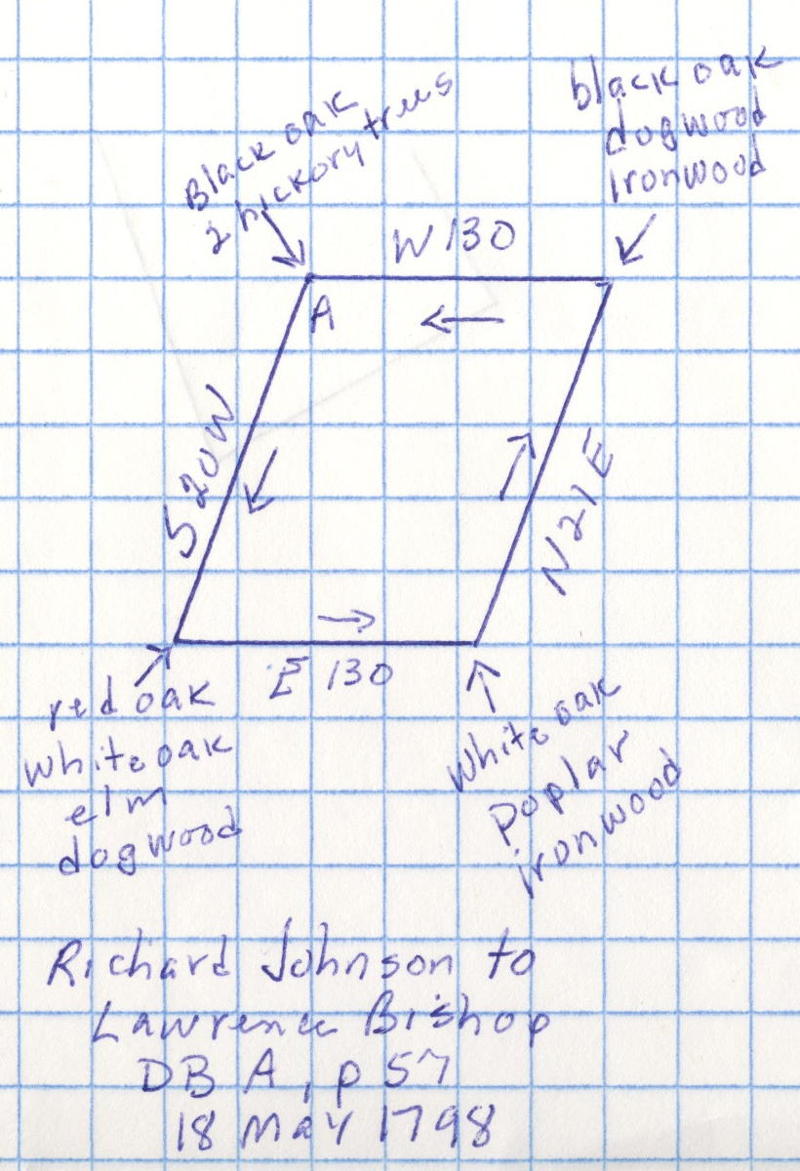 Black oak
2 hickory trees
black oak
dogwood
ironwood
W 130
A
S 20 W
N 21 E
E 130
red oak
white oak
elm
dogwood
White oak
poplar
ironwood
Richard Johnson to
Lawrence Bishop
DB A, p 57
18 May 1798